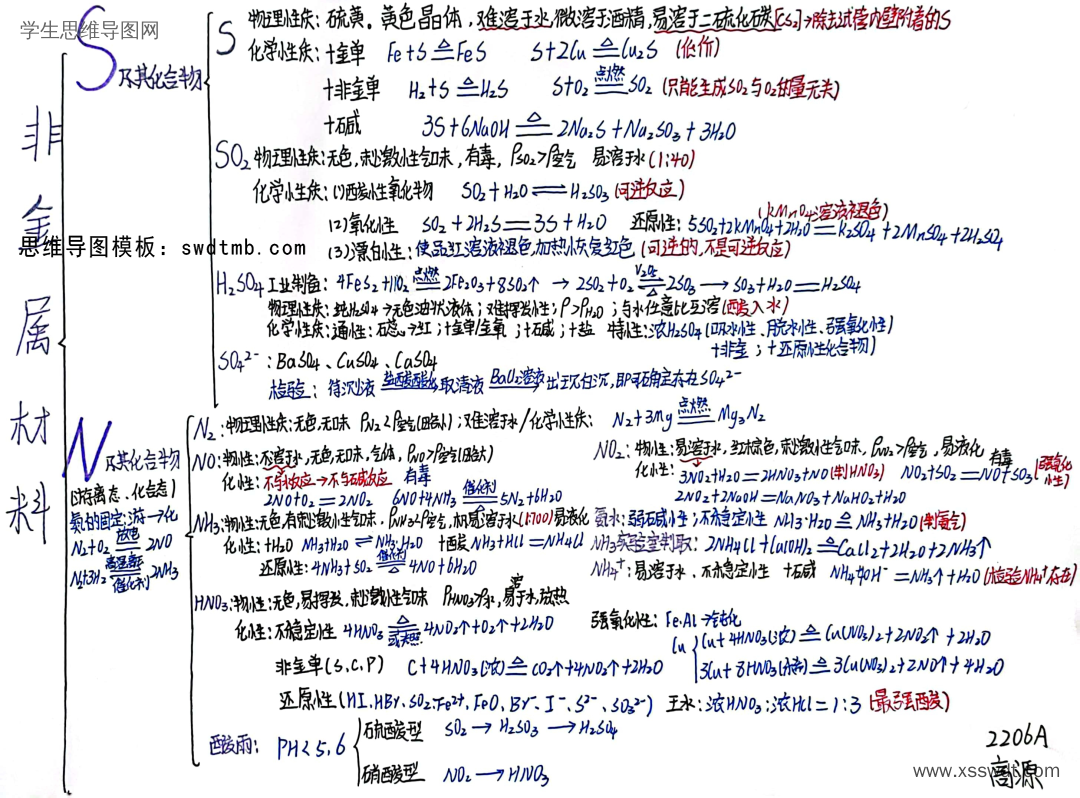 学生思维导图网
非金属材料
思维导图模板：swdtmb.com
S及其化合物
S 物理性质：硫黄。黄色晶体，难溶于水，微溶于酒精，易溶于二硫化碳[CS2]→除去试管内壁附着的S
化学性质：+金单 Fe+S≜FeS S+2Cu≜Cu2S (低价)
+非金单 H2+S≜H2S S+O2 点燃 SO2 (只能生成SO2与O2的量无关)
+石咸 3S+6NaOH≜2Na2S+Na2SO3+3H2O
SO2 物理性质：无色，刺激性气味，有毒，ρSO2>ρ空气 易溶于水(1:40)
化学性质：(1)酸性氧化物 SO2+H2O⇌H2SO3 (可逆反应)
(2)氧化性 SO2+2H2S=3S+H2O 还原性：5SO2+2KMnO4+2H2O=K2SO4+2MnSO4+2H2SO4
(KMnO4溶液褪色)
(3)漂白性：使品红溶液褪色，加热恢复红色 (可逆的，不是可逆反应)
H2SO4 工业制备：4FeS2+11O2 点燃 2Fe2O3+8SO2↑ → 2SO2+O2 V2O5 △ 2SO3 → SO3+H2O=H2SO4
物理性质：纯H2SO4→无色油状液体；难挥发性；ρ>ρH2O；与水任意比互溶 (酸入水)
化学性质：通性：石蕊→红；+金单/金氧；+石咸；+盐 特性：浓H2SO4 (吸水性、脱水性、强氧化性)
+非金；+还原性化合物)
SO4²⁻：BaSO4、CuSO4、CaSO4
检验：待测液 盐酸酸化 取清液 BaCl2溶液 出现白沉，即可确定存在SO4²⁻
N及其化合物
(游离态、化合态)
氮的固定：游→化
N2+O2 放电 2NO
N2+3H2 高温高压 催化剂 2NH3
N2：物理性质：无色，无味 ρN2<ρ空气(略小)；难溶于水/化学性质： N2+3Mg 点燃 Mg3N2
NO：物性：不溶于水，无色，无味，气体，ρNO>ρ空气(略大)
化性：不与水反应→不与石咸反应 有毒
2NO+O2=2NO2 6NO+4NH3 催化剂 5N2+6H2O
NO2：物性：易溶于水，红棕色，刺激性气味，ρNO2>ρ空气，易液化 有毒
化性：3NO2+H2O=2HNO3+NO (制HNO3) NO2+SO2=NO+SO3 (强氧化性)
2NO2+2NaOH=NaNO3+NaNO2+H2O
NH3：物性：无色有刺激性气味，ρNH3<ρ空气，极易溶于水(1:700)易液化
化性：+H2O NH3+H2O⇌NH3·H2O +酸 NH3+HCl=NH4Cl
还原性：4NH3+5O2 催化剂 △ 4NO+6H2O
氨水：弱石咸性；不稳定性 NH3·H2O≜NH3+H2O (制氨气)
NH3实验室制取：2NH4Cl+Ca(OH)2≜CaCl2+2H2O+2NH3↑
NH4⁺：易溶于水、不稳定性 +石咸 NH4⁺+OH⁻=NH3↑+H2O (检验NH4⁺存在)
HNO3：物性：无色，易挥发，刺激性气味 ρHNO3>ρ水，易溶于水，放热
化性：不稳定性 4HNO3 △ 或光照 4NO2↑+O2↑+2H2O
强氧化性：Fe.Al→钝化
Cu Cu+4HNO3(浓)≜Cu(NO3)2+2NO2↑+2H2O
3Cu+8HNO3(稀)≜3Cu(NO3)2+2NO↑+4H2O
非金单(S、C、P) C+4HNO3(浓)≜CO2↑+4NO2↑+2H2O
还原性(HI、HBr、SO2、Fe²⁺、FeO、Br⁻、I⁻、S²⁻、SO3²⁻) 王水：浓HNO3:浓HCl=1:3 (最强酸)
酸雨：PH<5.6
硫酸型 SO2→H2SO3→H2SO4
硝酸型 NO2→HNO3
2206A
高源
www.xsswdt.com